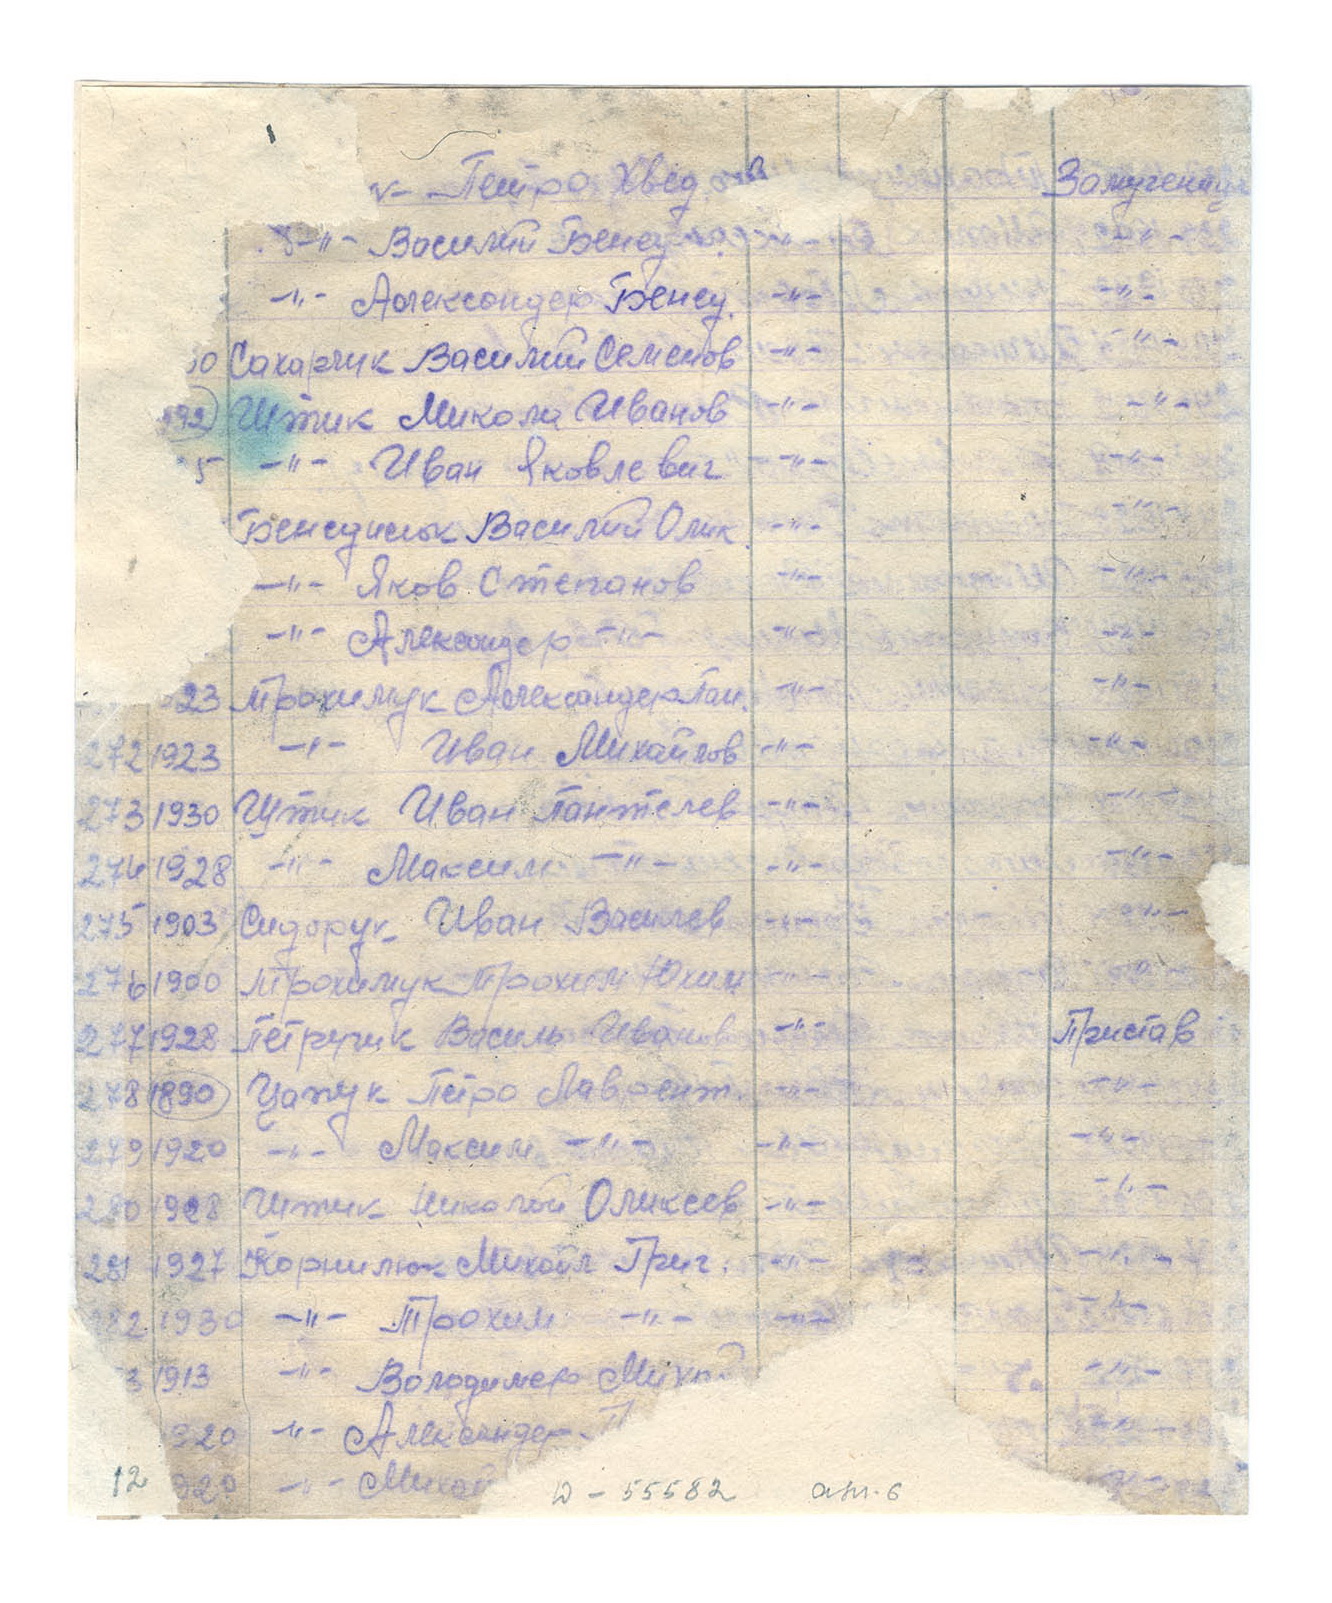 -"- Петро Хвед. Замучений
-"- Василий Бенед. -"- -"-
-"- Александер Бенед. -"- -"-
30 Сахарчик Василий Семенов -"- -"-
892 Штик Микола Иванов -"- -"-
5 -"- Иван Яковлевич -"- -"-
Бенедисюк Василий Олик. -"- -"-
-"- Яков Степанов -"- -"-
-"- Александер -"- -"- -"-
23 Трохимук Александер Пан. -"- -"-
272 1923 -"- Иван Михайлов -"- -"-
273 1930 Штик Иван Пантелев -"- -"-
274 1928 -"- Максим -"- -"- -"-
275 1903 Сидорук Иван Василев -"- -"-
276 1900 Трохимук Трохим Юхим -"- -"-
277 1928 Петручик Василь Иванов -"- Пристав
278 1890 Цапук Петро Лаврент. -"- -"-
279 1920 -"- Максим -"- -"- -"-
280 1928 Штик Николай Оликсев -"- -"-
281 1927 Корнилюк Михайл Григ. -"- -"-
282 1930 -"- Трохим -"- -"- -"-
3 1913 -"- Володимер Михай -"-
920 -"- Александер
920 -"- Михай
12 D-55582 арк. 6